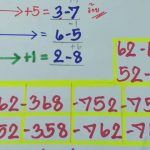 → +5 = 3-7
→ = 6-5
→ +1 = 2-8
62-
52-
62-368-752-75
52-358-762-7